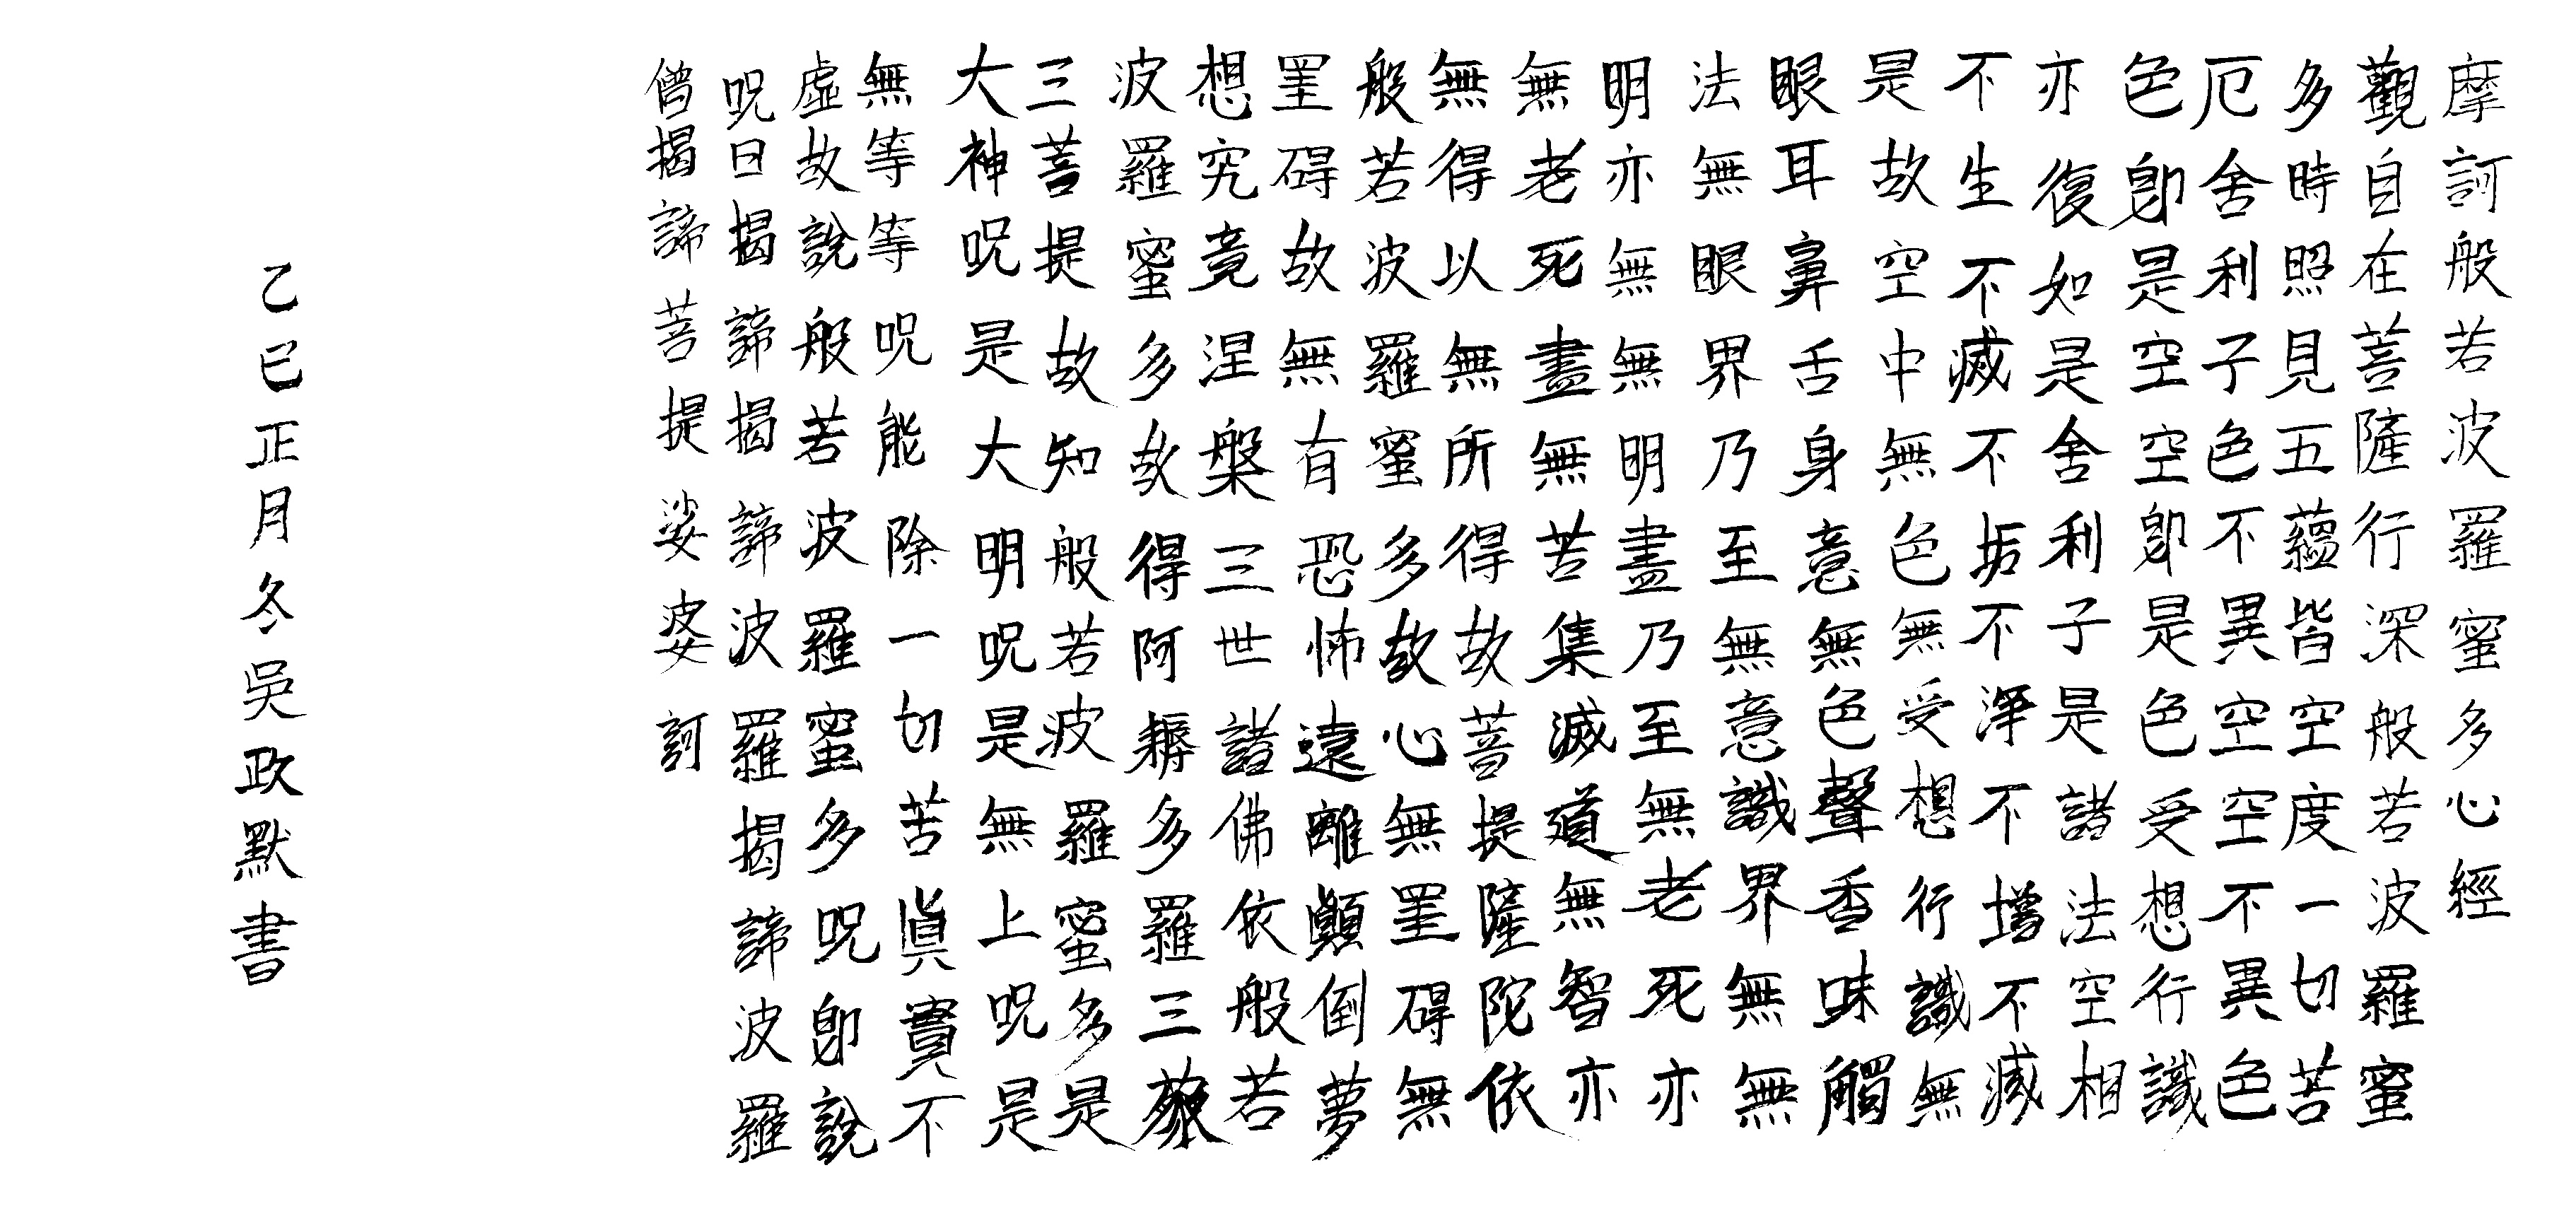 摩訶般若波羅蜜多心經
觀自在菩薩行深般若波羅蜜
多時照見五蘊皆空度一切苦
厄舍利子色不異空空不異色
色即是空空即是色受想行識
亦復如是舍利子是諸法空相
不生不滅不垢不淨不增不減
是故空中無色無受想行識無
眼耳鼻舌身意無色聲香味觸
法無眼界乃至無意識界無無
明亦無無明盡乃至無老死亦
無老死盡無苦集滅道無智亦
無得以無所得故菩提薩陀依
般若波羅蜜多故心無罣碍無
罣碍故無有恐怖遠離顛倒夢
想究竟涅槃三世諸佛依般若
波羅蜜多故得阿耨多羅三藐
三菩提故知般若波羅蜜多是
大神呪是大明呪是無上呪是
無等等呪能除一切苦真實不
虛故說般若波羅蜜多呪即說
呪曰揭諦揭諦波羅揭諦波羅
僧揭諦菩提娑婆訶
乙巳正月冬吳政默書